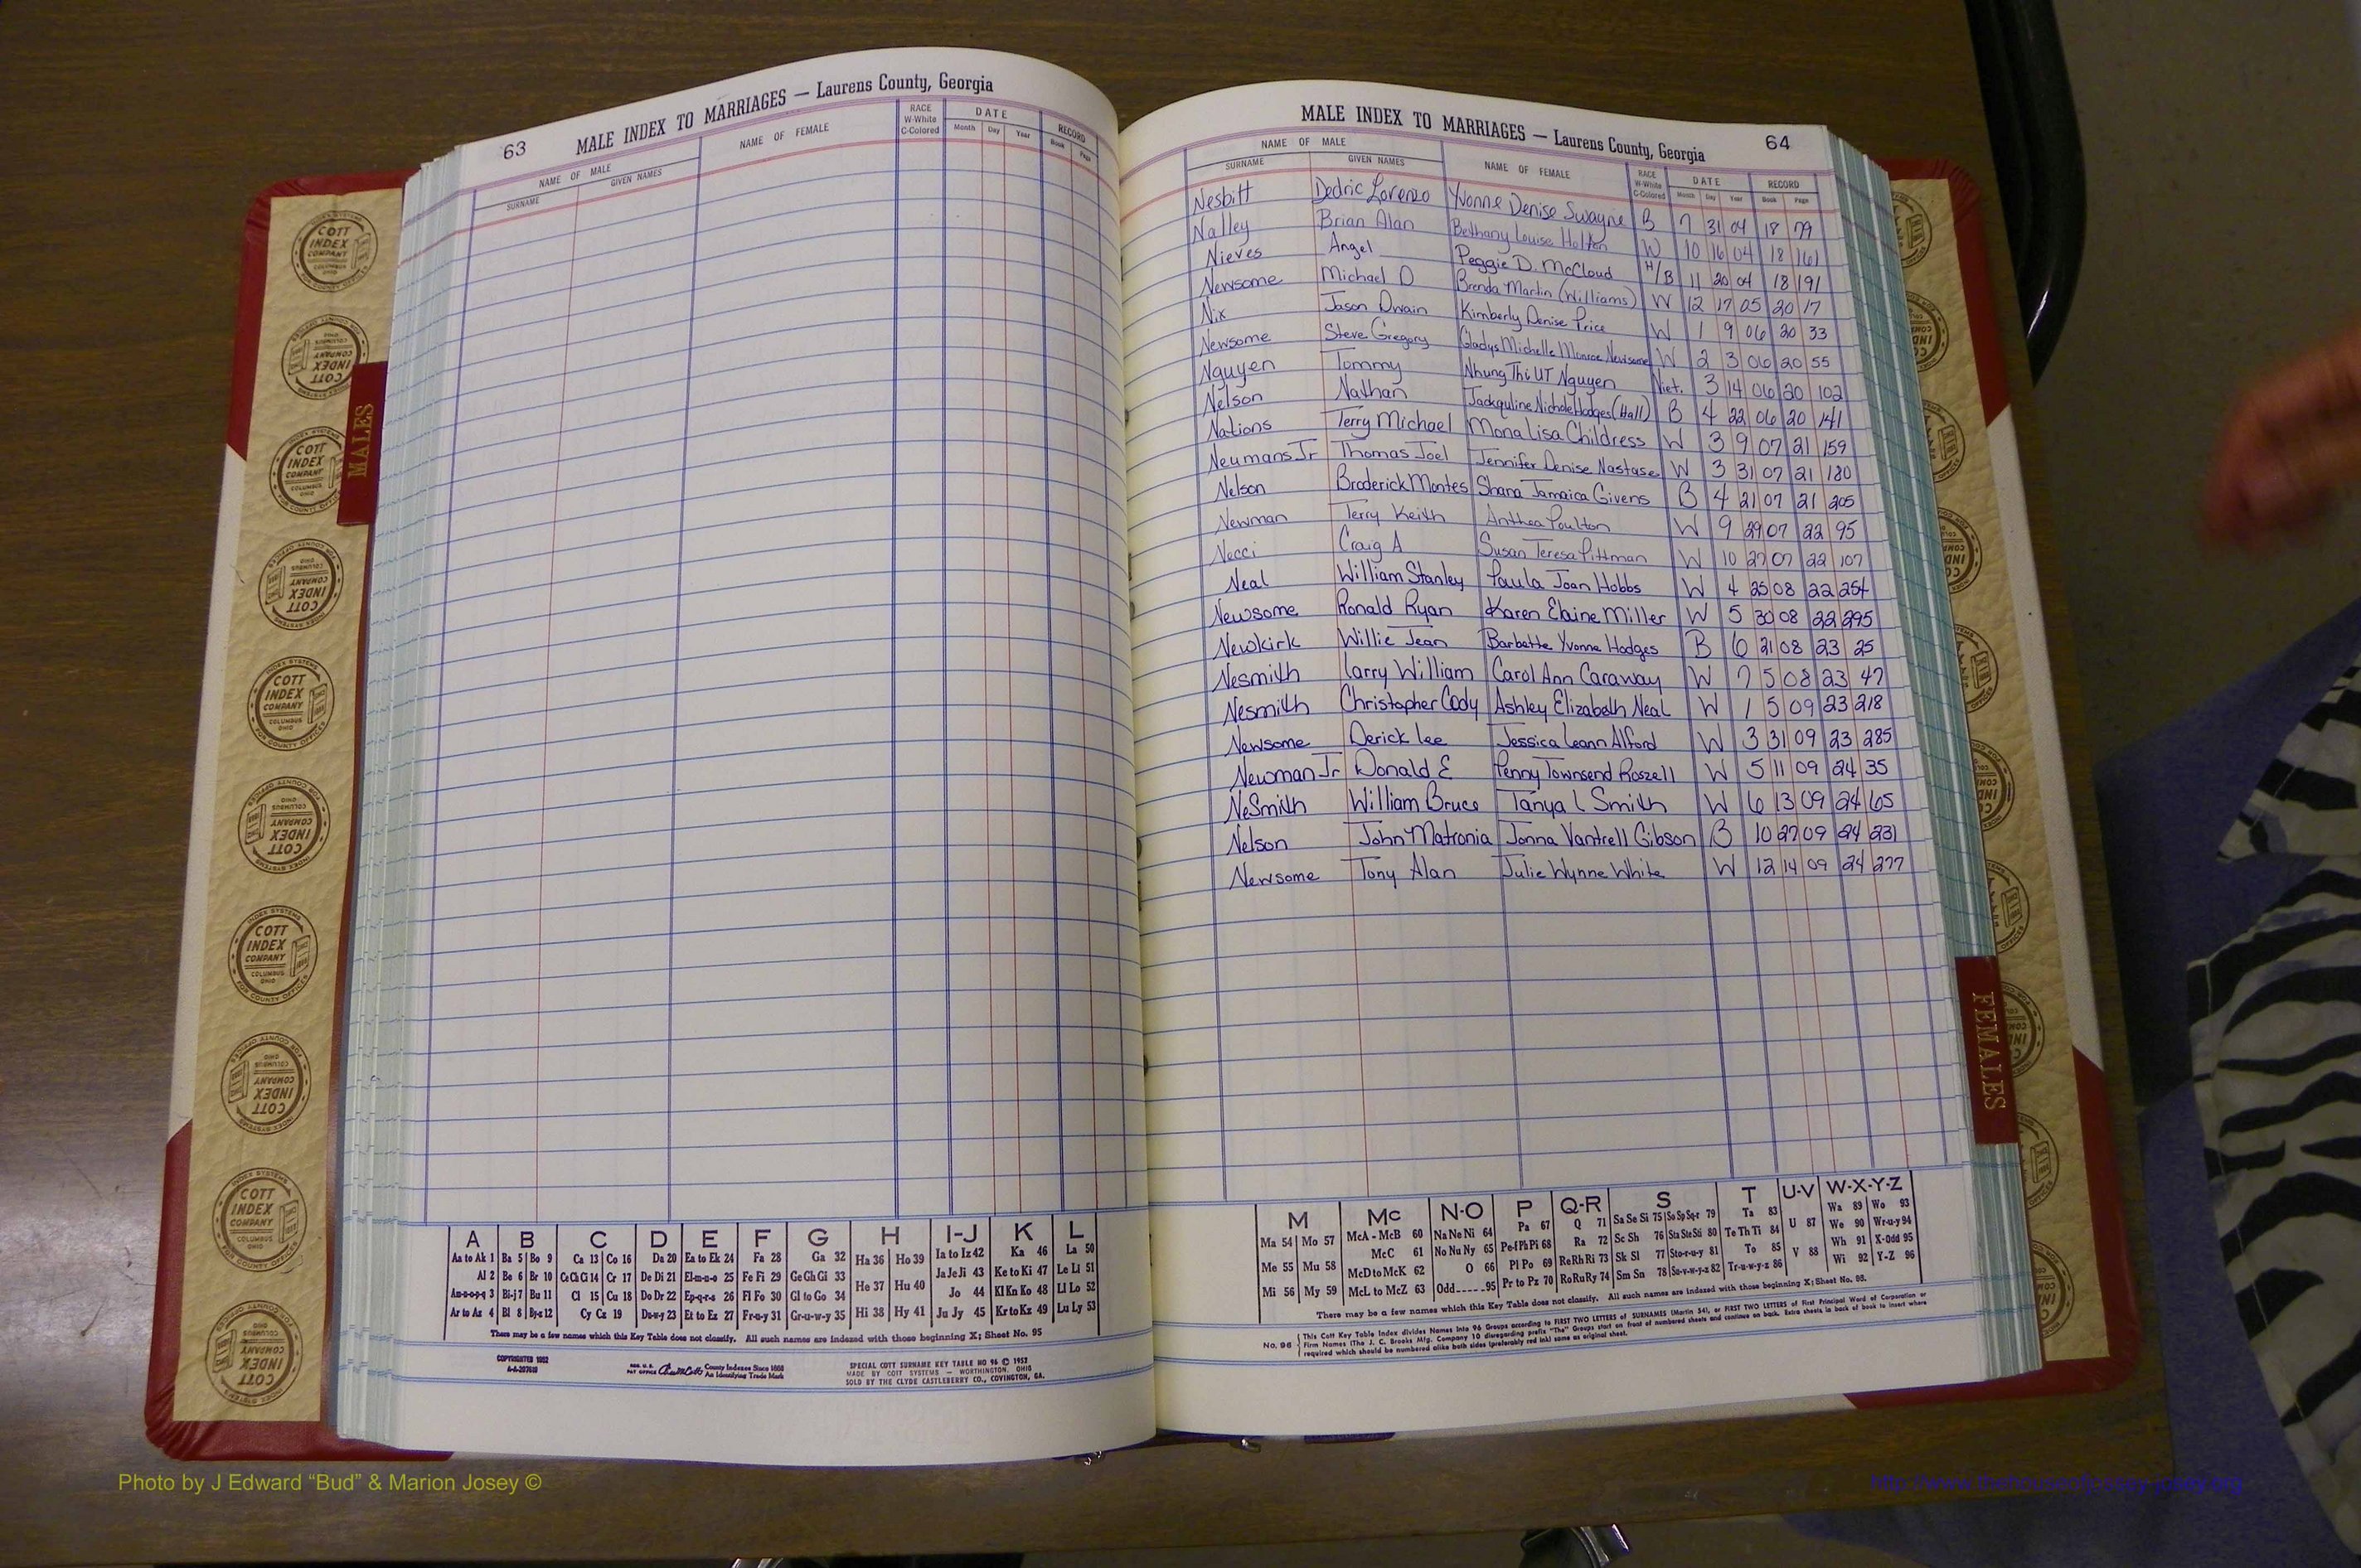 63 MALE INDEX TO MARRIAGES — Laurens County, Georgia
NAME OF MALE NAME OF FEMALE RACE W-White C-Colored DATE RECORD
SURNAME GIVEN NAMES Month Day Year Book Page
MALE INDEX TO MARRIAGES — Laurens County, Georgia 64
NAME OF MALE NAME OF FEMALE RACE W-White C-Colored DATE RECORD
SURNAME GIVEN NAMES Month Day Year Book Page
Nesbitt Dedric Lorenzo Yvonne Denise Swayne B 7 31 04 18 79
Nalley Brian Alan Bethany Louise Holton W 10 16 04 18 161
Nieves Angel Peggie D. McCloud H/B 11 20 04 18 191
Newsome Michael D Brenda Martin (Williams) W 12 17 05 20 17
Nix Jason Dwain Kimberly Denise Price W 1 9 06 20 33
Newsome Steve Gregory Gladys Michelle Monroe Newsome W 2 3 06 20 55
Nguyen Tommy Nhung Thi UT Nguyen Viet. 3 14 06 20 102
Nelson Nathan Jackquline Nichole Hodges (Hall) B 4 22 06 20 141
Nations Terry Michael Mona Lisa Childress W 3 9 07 21 159
Neumans Jr Thomas Joel Jennifer Denise Nastase W 3 31 07 21 180
Nelson Broderick Montes Shana Jamaica Givens B 4 21 07 21 205
Newman Terry Keith Anthea Poulton W 9 29 07 22 95
Necci Craig A Susan Teresa Pittman W 10 27 07 22 107
Neal William Stanley Paula Joan Hobbs W 4 25 08 22 254
Newsome Ronald Ryan Karen Elaine Miller W 5 30 08 22 295
Newkirk Willie Jean Barbette Yvonne Hodges B 6 21 08 23 25
Nesmith Larry William Carol Ann Caraway W 7 5 08 23 47
Nesmith Christopher Cody Ashley Elizabeth Neal W 1 5 09 23 218
Newsome Derick Lee Jessica Leann Alford W 3 31 09 23 285
Newman Jr Donald E Penny Townsend Roszell W 5 11 09 24 35
NeSmith William Bruce Tanya L Smith W 6 13 09 24 65
Nelson John Matronia Jonna Vantrell Gibson B 10 27 09 24 231
Newsome Tony Alan Julie Wynne White W 12 14 09 24 277
MALES
FEMALES
COTT INDEX COMPANY COLUMBUS OHIO
INDEX SYSTEMS FOR COUNTY OFFICES
A B C D E F G H I-J K L
Aa to Ak 1 Ba 5 Bo 9 Ca 13 Co 16 Da 20 Ea to Ek 24 Fa 28 Ga 32 Ha 36 Ho 39 Ia to Iz 42 Ka 46 La 50
Al 2 Be 6 Br 10 Ce Ch Ci 14 Cr 17 De Di 21 El-m-n-o 25 Fe Fi 29 Ge Gh Gi 33 He 37 Hu 40 Ja Je Ji 43 Ke to Ki 47 Le Li 51
Am-n-o-p-q 3 Bi-j 7 Bu 11 Cl 15 Cu 18 Do Dr 22 Ep-q-r-s 26 Fl Fo 30 Gl to Go 34 Jo 44 Kl Kn Ko 48 Ll Lo 52
Ar to Az 4 Bl 8 By-z 12 Cy Cz 19 Du-w-y 23 Et to Ez 27 Fr-u-y 31 Gr-u-w-y 35 Hi 38 Hy 41 Ju Jy 45 Kr to Kz 49 Lu Ly 53
There may be a few names which this Key Table does not classify. All such names are indexed with those beginning X; Sheet No. 95
REG. U.S. PAT OFFICE County Indexes Since 1888 An Identifying Trade Mark
SPECIAL COTT SURNAME KEY TABLE NO 96 © 1953
MADE BY COTT SYSTEMS — WORTHINGTON, OHIO
SOLD BY THE CLYDE CASTLEBERRY CO., COVINGTON, GA.
M Mc N-O P Q-R S T U-V W-X-Y-Z
Ma 54 Mo 57 McA - McB 60 Na Ne Ni 64 Pa 67 Q 71 Sa Se Si 75 So Sp Sq-r 79 Ta 83 U 87 Wa 89 Wo 93
Me 55 Mu 58 McC 61 No Nu Ny 65 Pe-f Ph Pi 68 Ra 72 Sc Sh 76 Sta Ste Sti 80 Te Th Ti 84 V 88 We 90 Wr-u-y 94
McD to McK 62 O 66 Pl Po 69 Re Rh Ri 73 Sk Sl 77 Sto-r-u-y 81 To 85 Wh 91 X-Odd 95
Mi 56 My 59 McL to McZ 63 Odd 95 Pr to Pz 70 Ro Ru Ry 74 Sm Sn 78 Su-v-w-y-z 82 Tr-u-w-y-z 86 Wi 92 Y-Z 96
There may be a few names which this Key Table does not classify. All such names are indexed with those beginning X; Sheet No. 95.
No. 96 This Cott Key Table Index divides Names Into 96 Groups according to FIRST TWO LETTERS of SURNAMES (Martin 54), or FIRST TWO LETTERS of First Principal Word of Corporation or
Firm Names (The J. C. Brooks Mfg. Company 10 disregarding prefix "The" Groups start on front of numbered sheets and continue on back. Extra sheets in back of book to insert where
required which should be numbered alike both sides (preferably red ink) same as original sheet.
Photo by J Edward “Bud” & Marion Josey ©